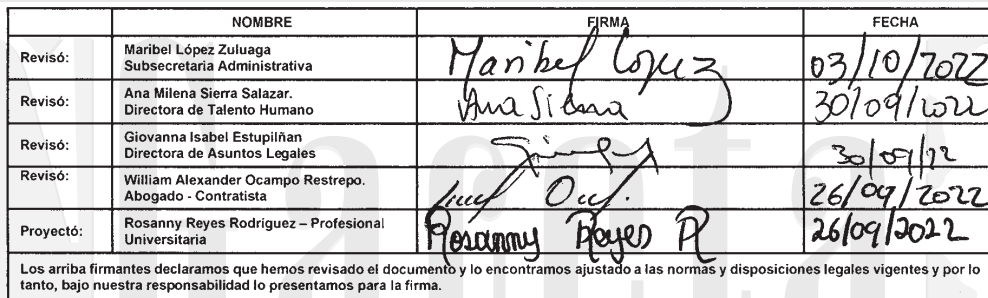 NOMBRE FIRMA FECHA
Revisó: Maribel López Zuluaga
Subsecretaria Administrativa
Maribel López 03/10/2022
Revisó: Ana Milena Sierra Salazar.
Directora de Talento Humano
Ana Sierra 30/09/2022
Revisó: Giovanna Isabel Estupiñan
Directora de Asuntos Legales
30/09/22
Revisó: William Alexander Ocampo Restrepo.
Abogado - Contratista
26/09/2022
Proyectó: Rosanny Reyes Rodríguez – Profesional
Universitaria
Rosanny Reyes R 26/09/2022
Los arriba firmantes declaramos que hemos revisado el documento y lo encontramos ajustado a las normas y disposiciones legales vigentes y por lo
tanto, bajo nuestra responsabilidad lo presentamos para la firma.